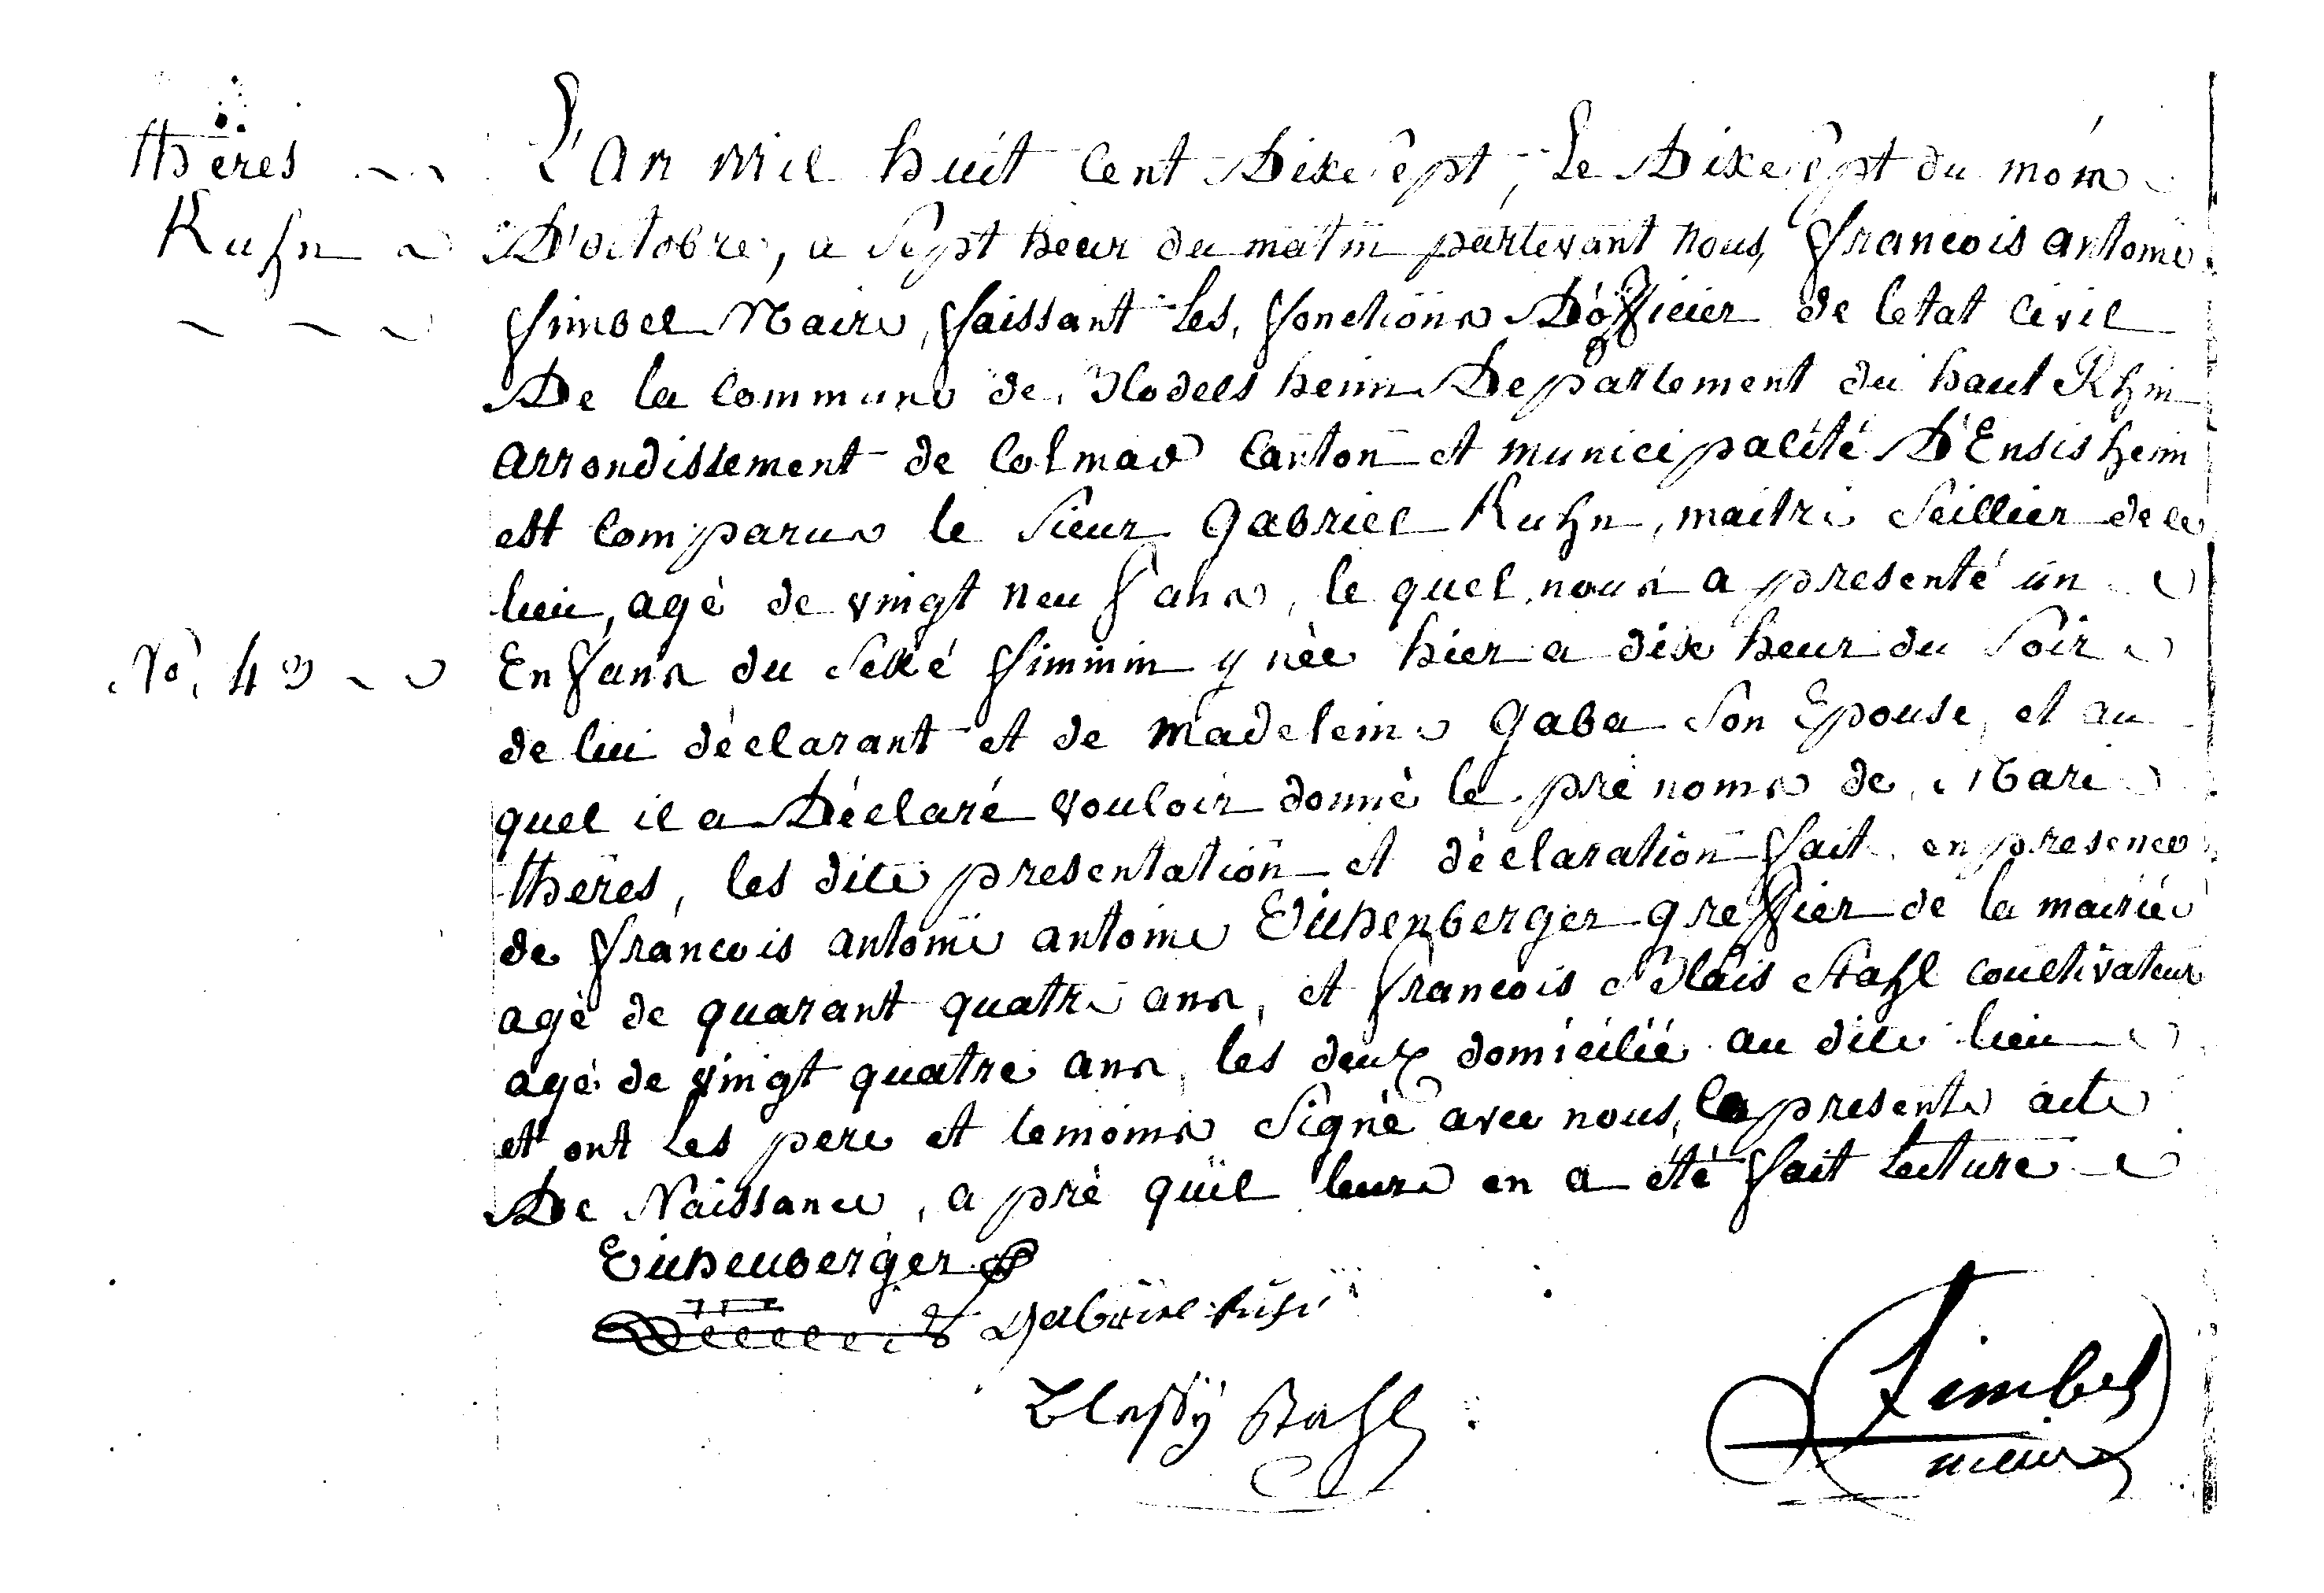 thères
Kuhn
No. 49
L'an mil huit Cent Dixesêpt, Le Dixesêpt du mom
D'octobre, a Sept heur du matin partevant nous, francois antome
fimbel Maire, faissant Les, fonctions D'officier de letat Civil
De la Commune de Blodelsheim Departement du haut Rhin
arrondissement de Colmar Canton et municipalité D'Ensisheim
est Comparus le Sieur Gabriel Kuhn, maitre Seillier de ce
lieu, agè de vingt neuf ans, le quel nous a presenté un
Enfans du Sexé fiminin y nèe hier a dix heur du Soir
de lui dèclarant et de Madeleine Gaba Son Epouse, et au
quel il a Déclaré vouloir donnè le prenoms de Marie
thères, les dite presentation et dèclaration fait en presence
de francois antome antome Eichenberger greffier de la mairie
agè de quarant quatre ans, et francois Blais Stahl coultivateur
agè de vingt quatre ans, les deux domicilié au dite lieu
et ont Les pere et temoins Signè avec nous, le presente acte
De Naissance, aprè quil leure en a été fait Lecture
Eichenberger
Gabriel Kuhn
Blassy Stahl
fimbel
maire